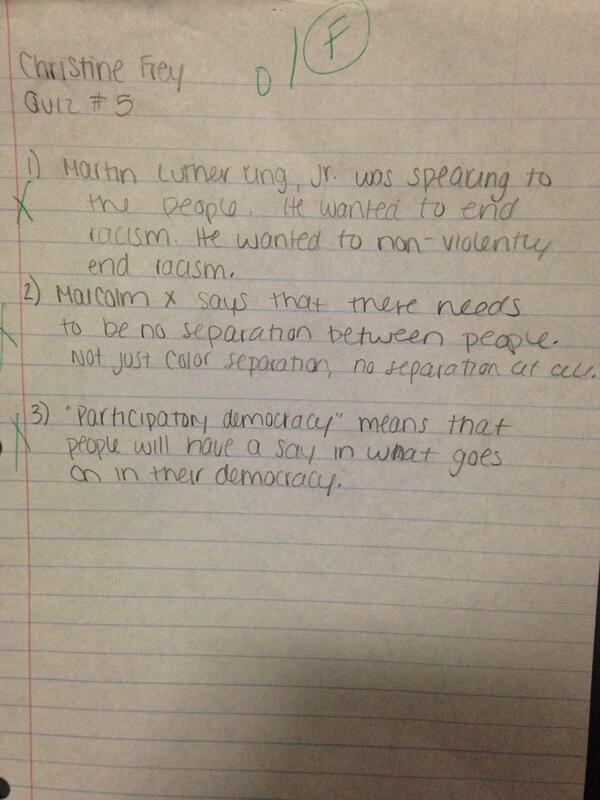 0/F
Christine Frey
Quiz #5
1) Martin Luther King, Jr. was speaking to
the people. He wanted to end
racism. He wanted to non-violently
end racism.
2) Malcolm X says that there needs
to be no separation between people.
Not just color separation, no separation at all.
3) "Participatory democracy" means that
people will have a say in what goes
on in their democracy.